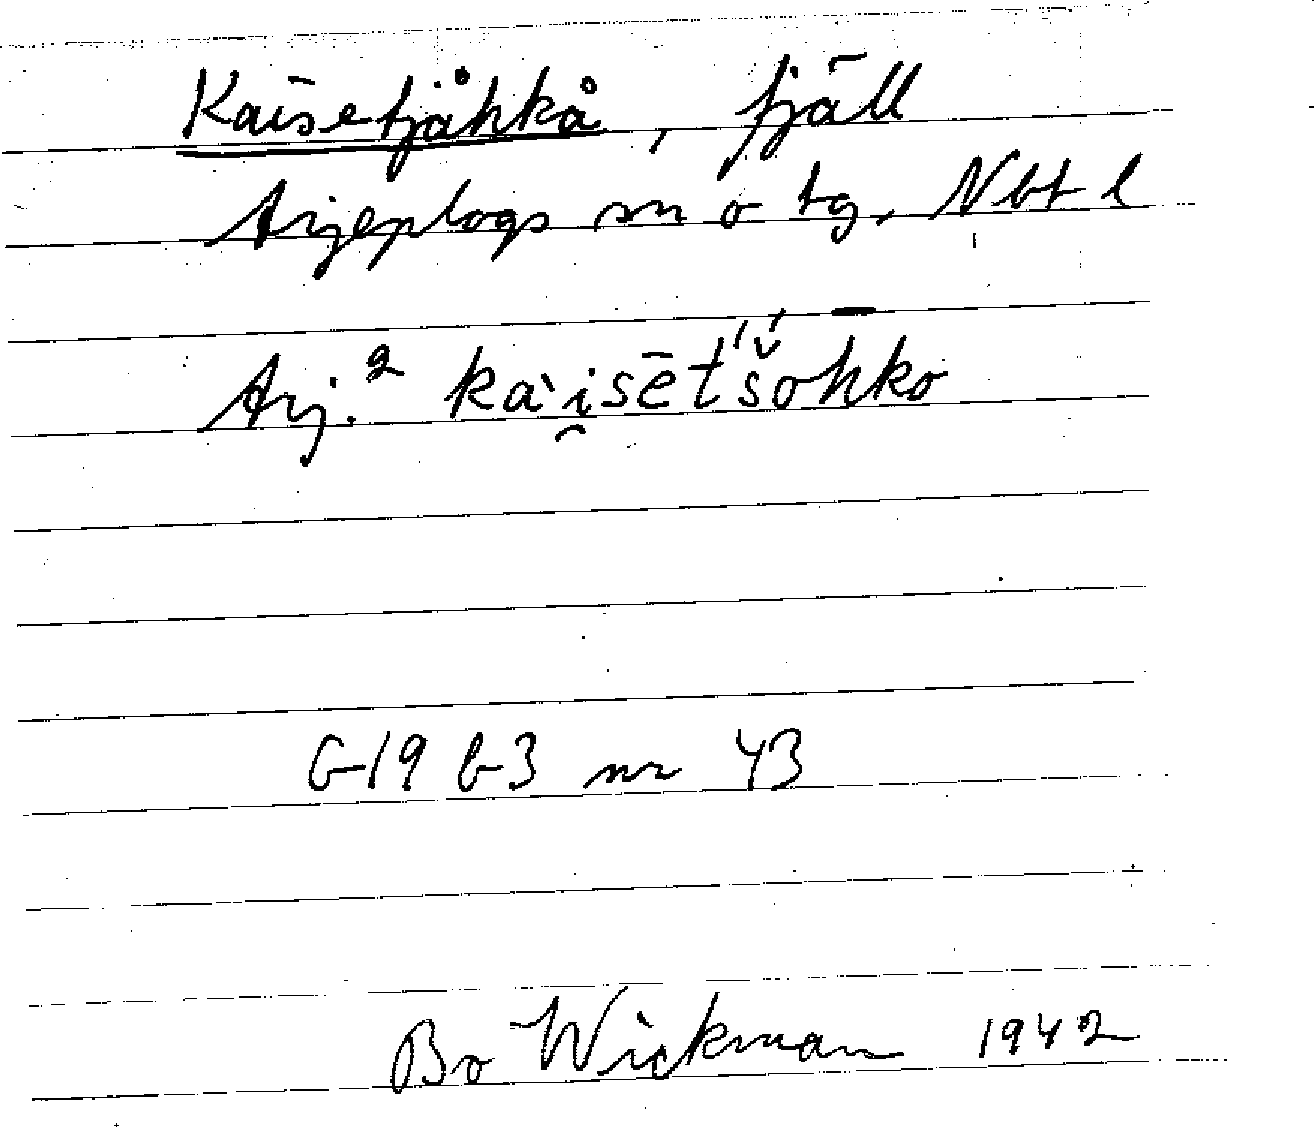 Kaisetjåhkå, fjäll
Arjeplogs sn o tg, Nbt l
Arj.² kài̯sēt́'š́ōhko
G19 b3 nr 43
Bo Wickman 1942